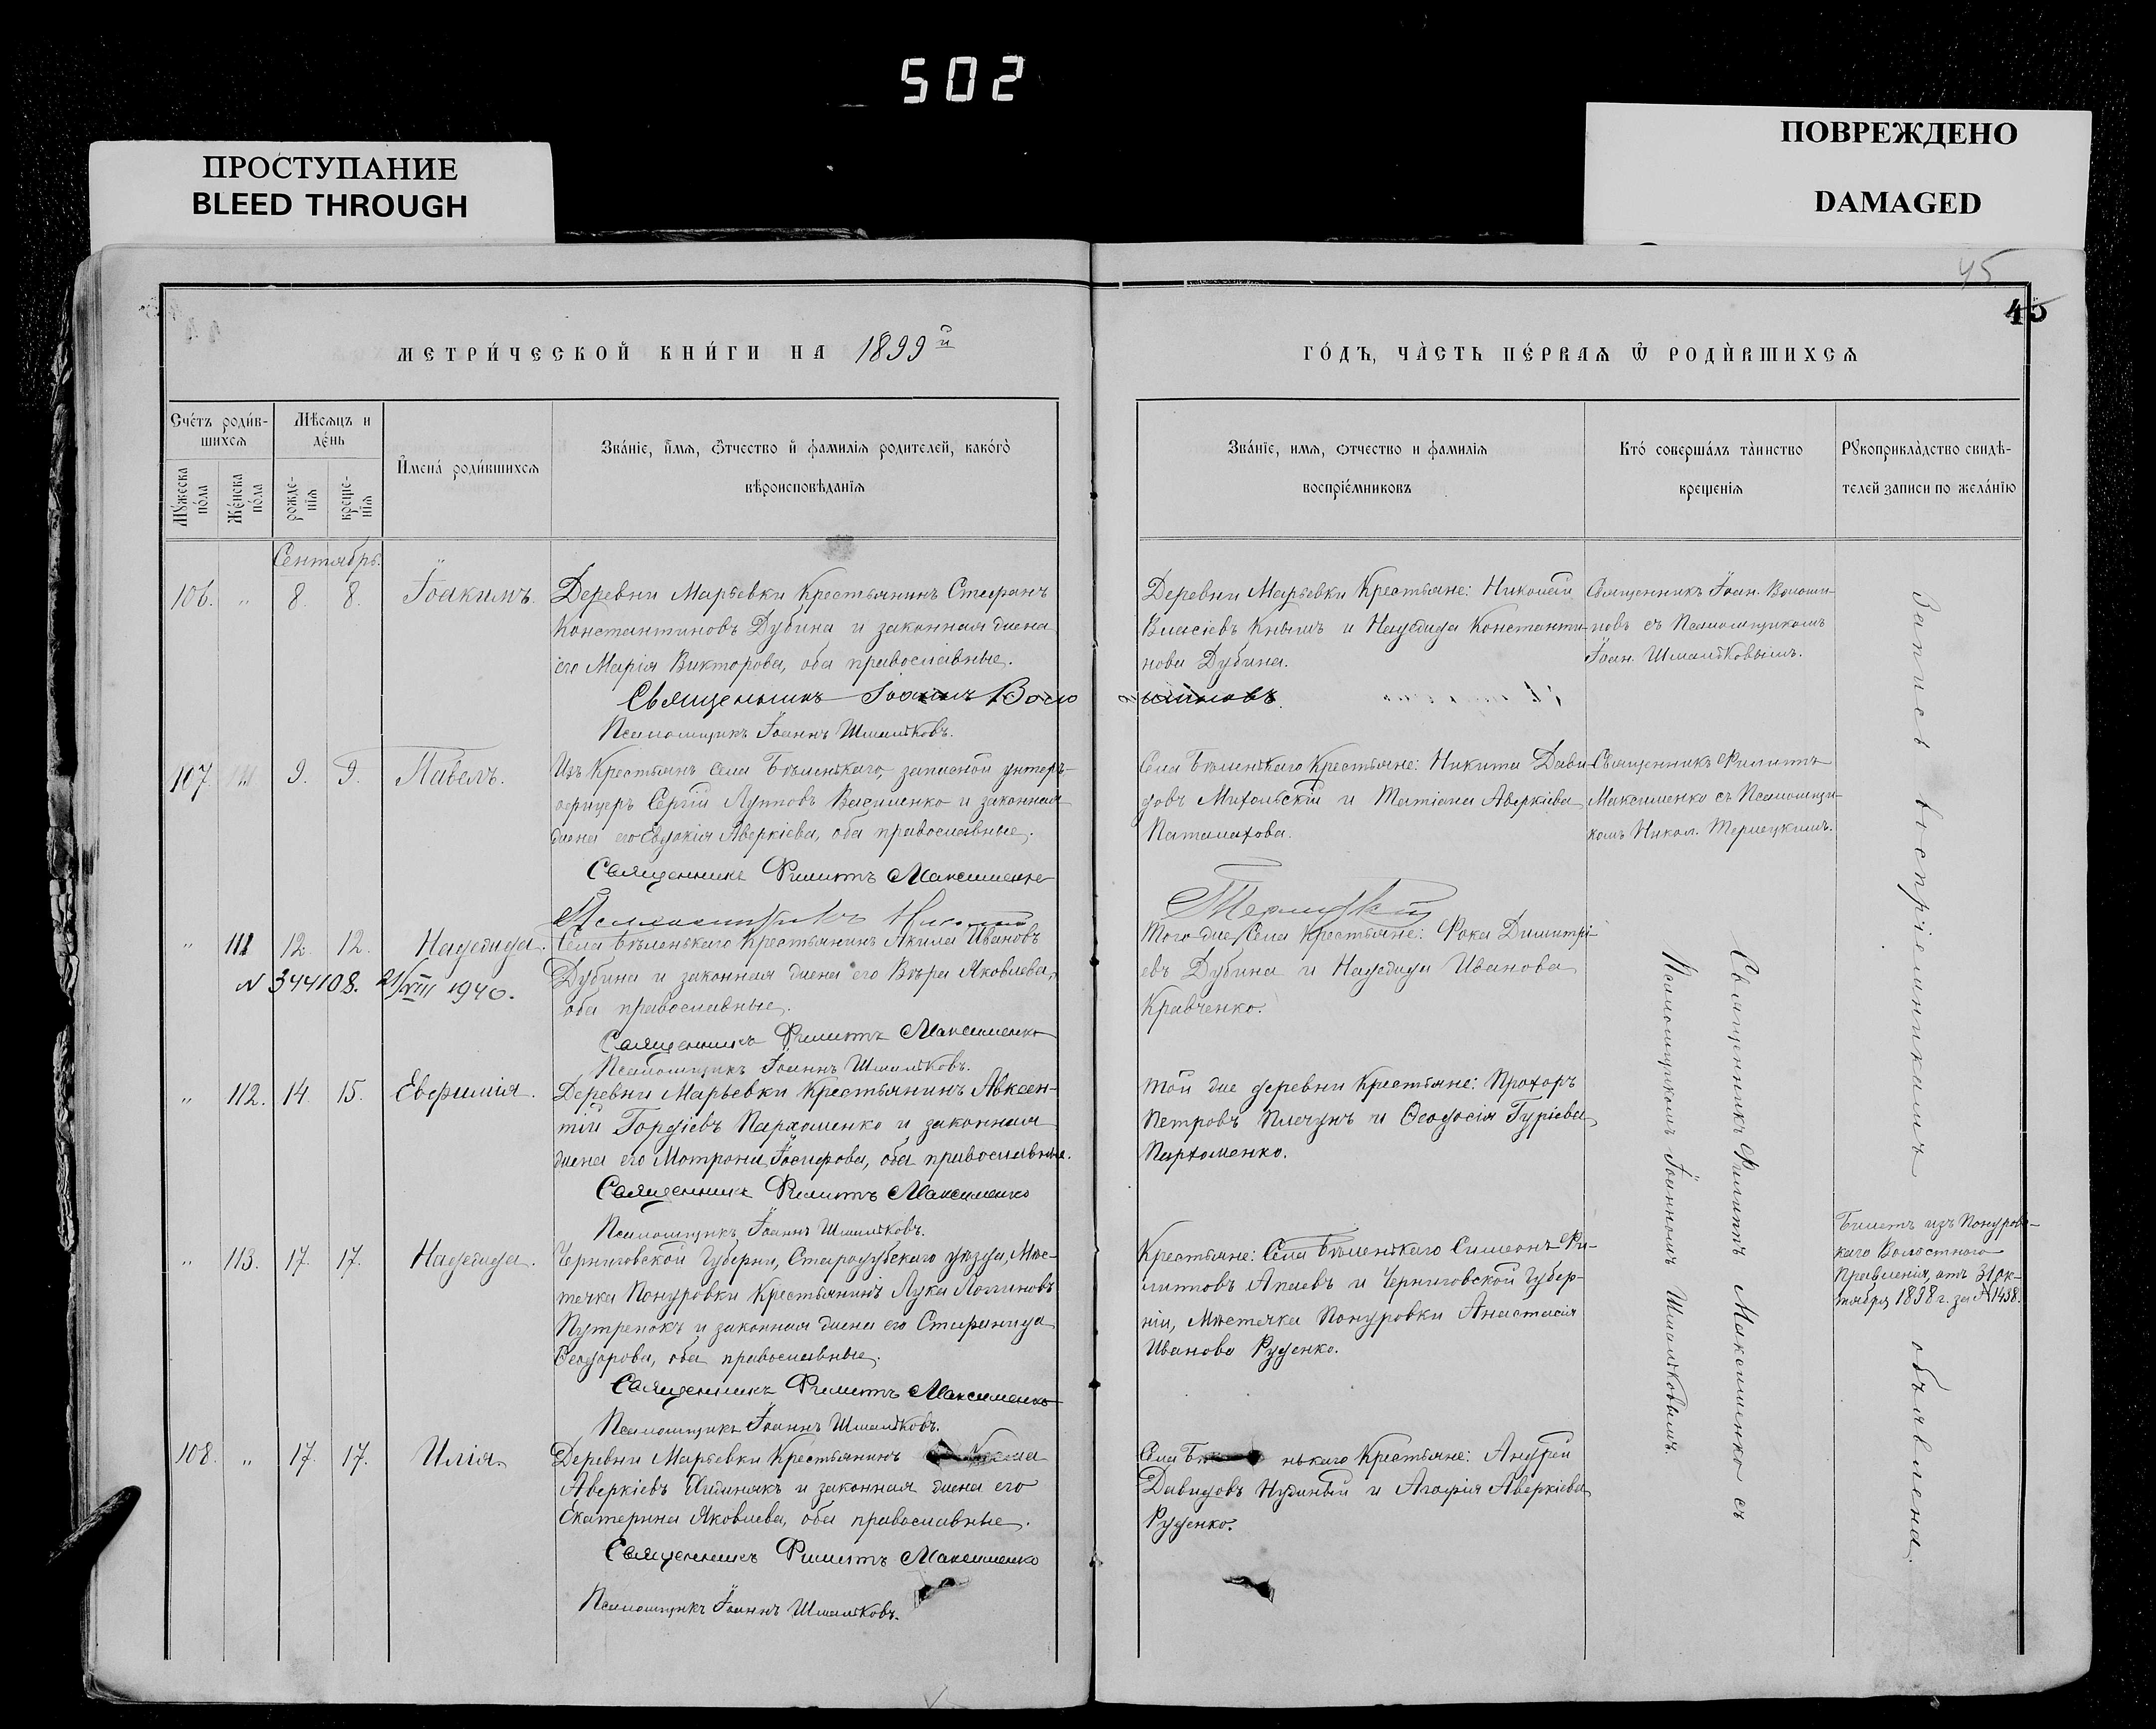 502
ПРОСТУПАНИЕ
BLEED THROUGH
ПОВРЕЖДЕНО
DAMAGED
45
45
МЕТРИ́ЧЕСКОЙ КНИ́ГИ НА 1899й
ГО́ДЪ, ЧА̀СТЬ ПЕ́РВАѦ Ѿ РОДЍВШИХСѦ
Счётъ роди́в-
шихсѧ
Мѣсѧцъ и
де́нь
Мꙋ́жеска
по́ла
Же́нска
по́ла
рожде-
нїѧ
креще-
нїѧ
И҆мена́ роди́вшихсѧ
Зва́нїе, и҆́мѧ, ѻ҆́тчество и҆ фамилїѧ родителей, како́гѡ
вѣроисповѣ́данїѧ
Зва́нїе, имѧ, ѻтчество и фамилїѧ
воспрїе́мниковъ
Кто́ соверша́лъ та̀инство
крещенїѧ
Рꙋкоприкла̀дство свидѣ-
телей записи по жела́нїю
Сентябрь.
106. " 8. 8. Іоакимъ.
Деревни Марьевки Крестьянинъ Стефанъ
Константиновъ Дубина и законная жена
его Марія Викторова, оба православные.
Священникъ Іоаннъ Воло
шиновъ.
Псаломщикъ Іоаннъ Шматковъ.
Деревни Марьевки Крестьяне: Николай
Власіевъ Книшъ и Надежда Константи-
нова Дубина.
Священникъ Іоан. Волоши-
новъ съ Псаломщикомъ
Іоан. Шматковымъ.
107. 9. 9. Павелъ.
Изъ Крестьянъ села Бѣленькаго, запасной унтеръ-
офицеръ Сергій Лупповъ Василенко и законная
жена его Евдокія Аверкіева, оба православные.
Священникъ Филиппъ Максименко
Псаломщикъ Николай
Терлецкій
Села Бѣленькаго Крестьяне: Никита Дави-
довъ Михольскій и Татіана Аверкіева
Паталахова.
Священникъ Филиппъ
Максименко съ Псаломщи-
комъ Никол. Терлецкимъ.
" 111 12. 12. Надежда.
N 344108. 21/VIII 1940.
Села Бѣленькаго Крестьянинъ Акила Ивановъ
Дубина и законная жена его Вѣра Яковлева,
оба православные.
Священникъ Филиппъ Максименко
Псаломщикъ Іоаннъ Шматковъ.
Того же Села Крестьяне: Фока Димитрі-
евъ Дубина и Надежда Иванова
Кравченко.
" 112. 14. 15. Евфимія.
Деревни Марьевки Крестьянинъ Авксен-
тій Гордіевъ Пархоменко и законная
жена его Мотрона Іосифова, оба православные.
Священникъ Филиппъ Максименко
Псаломщикъ Іоаннъ Шматковъ.
Той же деревни Крестьяне: Прохоръ
Петровъ Плечунъ и Ѳеодосія Гуріева
Пархоменко.
" 113. 17. 17. Надежда.
Черниговской Губерніи, Стародубскаго уѣзда, Мѣс-
течка Понуровки Крестьянинъ Лука Логиновъ
Путренокъ и законная жена его Стефанида
Ѳеодорова, оба православные.
Священникъ Филиппъ Максименко
Псаломщикъ Іоаннъ Шматковъ.
Крестьяне: Села Бѣленькаго Симеонъ Фи-
липповъ Апаевъ и Черниговской Губер-
ніи, Мѣстечка Понуровки Анастасія
Иванова Руденко.
Билетъ изъ Понуров-
скаго Волостного
Правленія, отъ 31 Ок-
тября 1898 г. за № 1458.
108. " 17. 17. Илія.
Деревни Марьевки Крестьянинъ Косма
Аверкіевъ и законная жена его
Екатерина Яковлева, оба православные.
Священникъ Филиппъ Максименко
Псаломщикъ Іоаннъ Шматковъ.
Села Бѣленькаго Крестьяне: Андрей
Давидовъ Нудный и Агафія Аверкіева
Руденко.
Священникъ Филиппъ Максименко съ
Псаломщикомъ Іоанномъ Шматковымъ.
Запись воспріемникамъ объявлена.